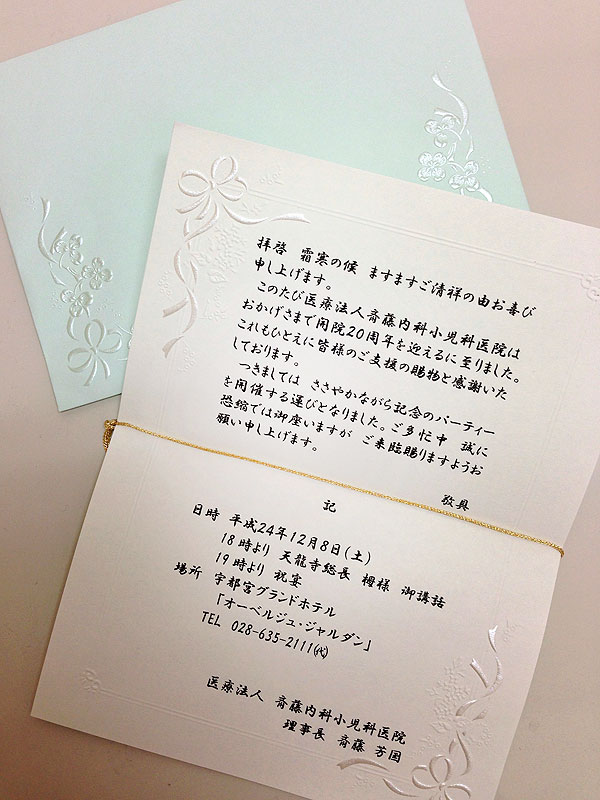 拝啓　霜寒の候　ますますご清祥の由お喜び
申し上げます。
このたび医療法人斉藤内科小児科医院は
おかげさまで開院20周年を迎えるに至りました。
これもひとえに皆様のご支援の賜物と感謝いた
しております。
つきましては　ささやかながら記念のパーティー
を開催する運びとなりました。ご多忙中　誠に
恐縮では御座いますが　ご来臨賜りますようお
願い申し上げます。
敬具
記
日時　平成24年12月8日(土)
18時より　天龍寺総長　栂様　御講話
19時より　祝宴
場所　宇都宮グランドホテル
「オーベルジュ・ジャルダン」
TEL　028-635-2111㈹
医療法人　斉藤内科小児科医院
理事長　斉藤　芳国